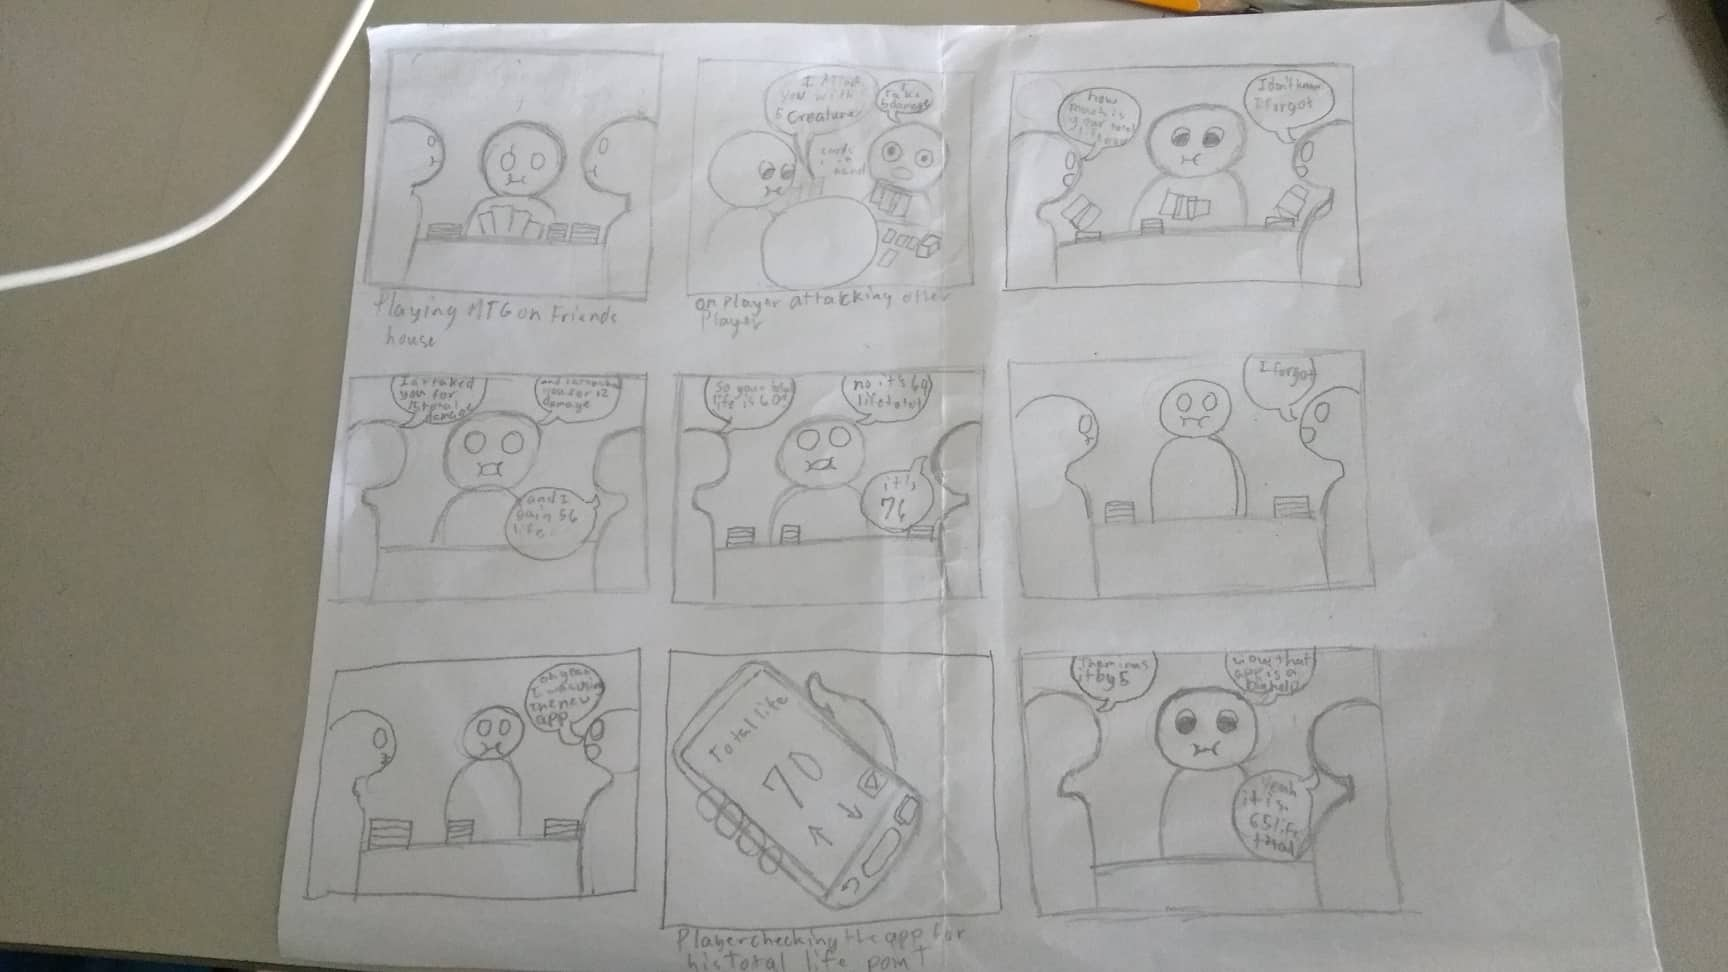 I Attack
you with
5 Creature
I
Take
5 damage
cards
in
hand
Playing MTG on Friends
house
on Player attacking other
Player
how
much is
your total
life
I don't know
I forgot
I attaked
you for
15 total
damage
and I attacked
you for 12
damage
and I
gain 56
life.
So your total
life is 60?
no it's 69
life total
it's
76
I forgot
oh yeah
I was using
the new
app
Total life
70
Player checking the app for
his total life point
Then minus
it by 5
wow that
app is a
big help
Yeah
it is
65 life
total